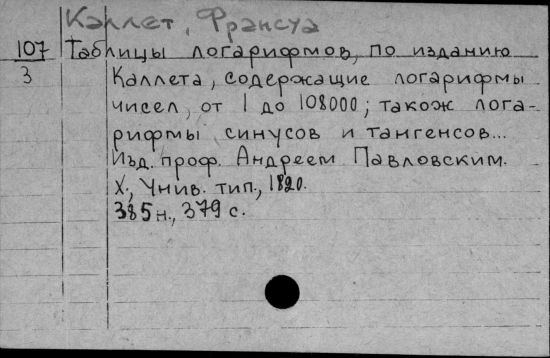 Каллет, Франсуа
107 Таблицы логарифмов, по изданию
3 Каллета, содержащие логарифмы
чисел, от 1 до 108000; також лога-
рифмы синусов и тангенсов...
Изд. проф. Андреем Павловским.
Х., Унив. тип., 1820.
385 н., 379 с.